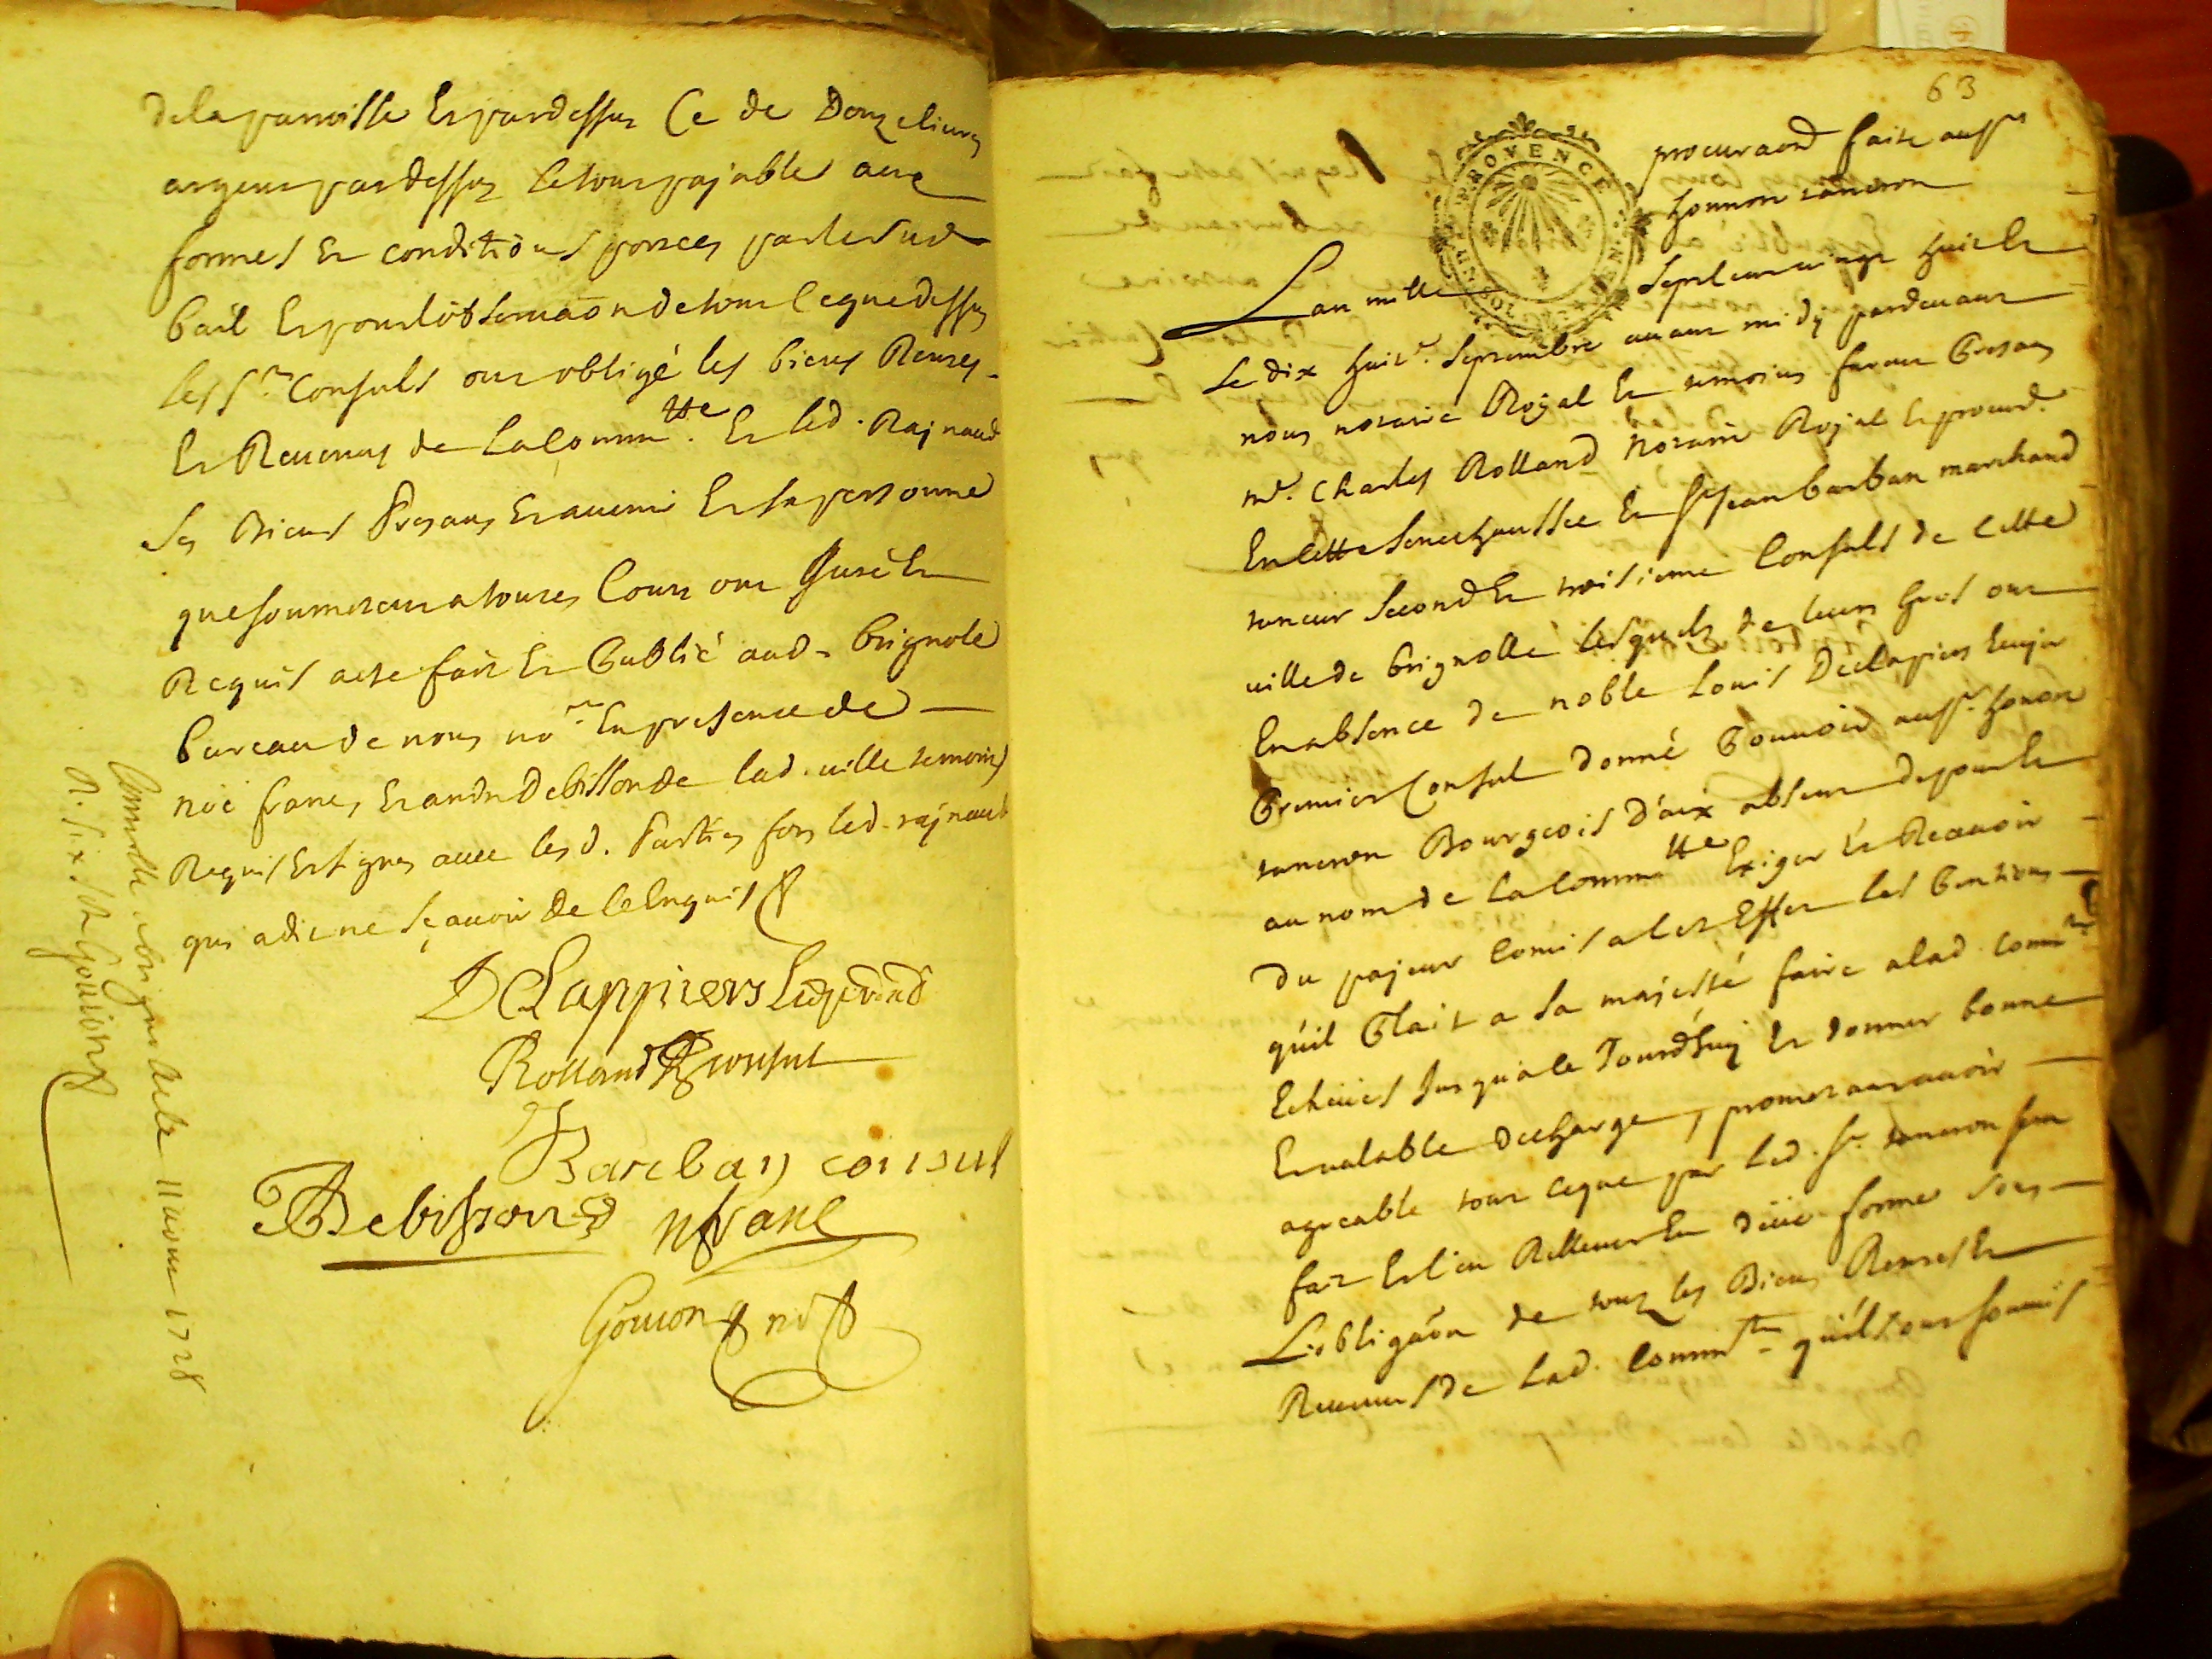 de la parroisse Et pardessus Ce de Douze livres
argent pardessus le tout payable aux
formes Et conditions portees par le susd
bail Et pour lobservaon de tout ce que dessus
les srs Consuls ont obligé les biens Rentes
Et Revenus de la Commtte. Et led. Raynaud
Ses Biens Presans Et avenir Et sa personne
que soumetent a toutes Cours ont Juré Et
Requis acte fait Et Publié aud. Brignole
bureau de nous nore En presence de
noé franc, Et andré Debisson de lad. ville temoins
Requis Et signes avec les d. Parties fors led. raynaud
qui a dit ne sçavoir de ce Enquis
DeClappiers
Rolland Consul
Barban consul
Debisson nfranc
Goujon no
Controllé a brignolle le 11 1728
R. six s. Goujon
63
PROVENCE
procuraon faite au sr
honnoré tanneron
Lan mille Sept cent vingt huit Et
Le dix huite. Septembre avant midy pardevant
nous notaire Royal Et temoins furent Presans
me. Charles Rolland Notaire Royal Et procur.
En Cette Senechaussée Et sr Jean barban marchand
taneur Second Et troisieme Consuls de Cette
ville de brignolle lesquels de leurs gres ont
En absence de noble Louis Declapiers
Premier Consul donné Pouvoir au sr. honoré
tanneron Bourgeois d'aix absent de pour Et
au nom de la Commtte Exiger Et Recevoir
du payeur Comis a cet Effet les Pentions
qu'il Plait a Sa majesté faire a lad. Commté
Echües Jusqu'a ce Jourd'huy Et donner bonne
Et valable decharge, prometant avoir
agreable tout ce que par led. sr. tanneron sera
fait Et l'en Rellever En düe forme sous
L'obligaon de tous les Biens Rentes Et
Revenus de lad. Commté qu'ils ont soumis